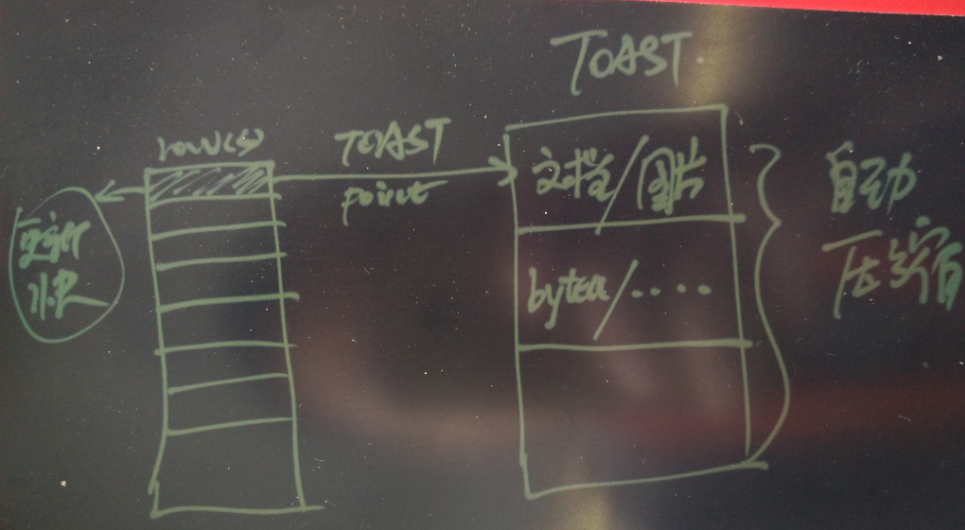 TOAST
row(s)
TOAST
point
文档/图片
更新
快
bytea/....
自动
压缩